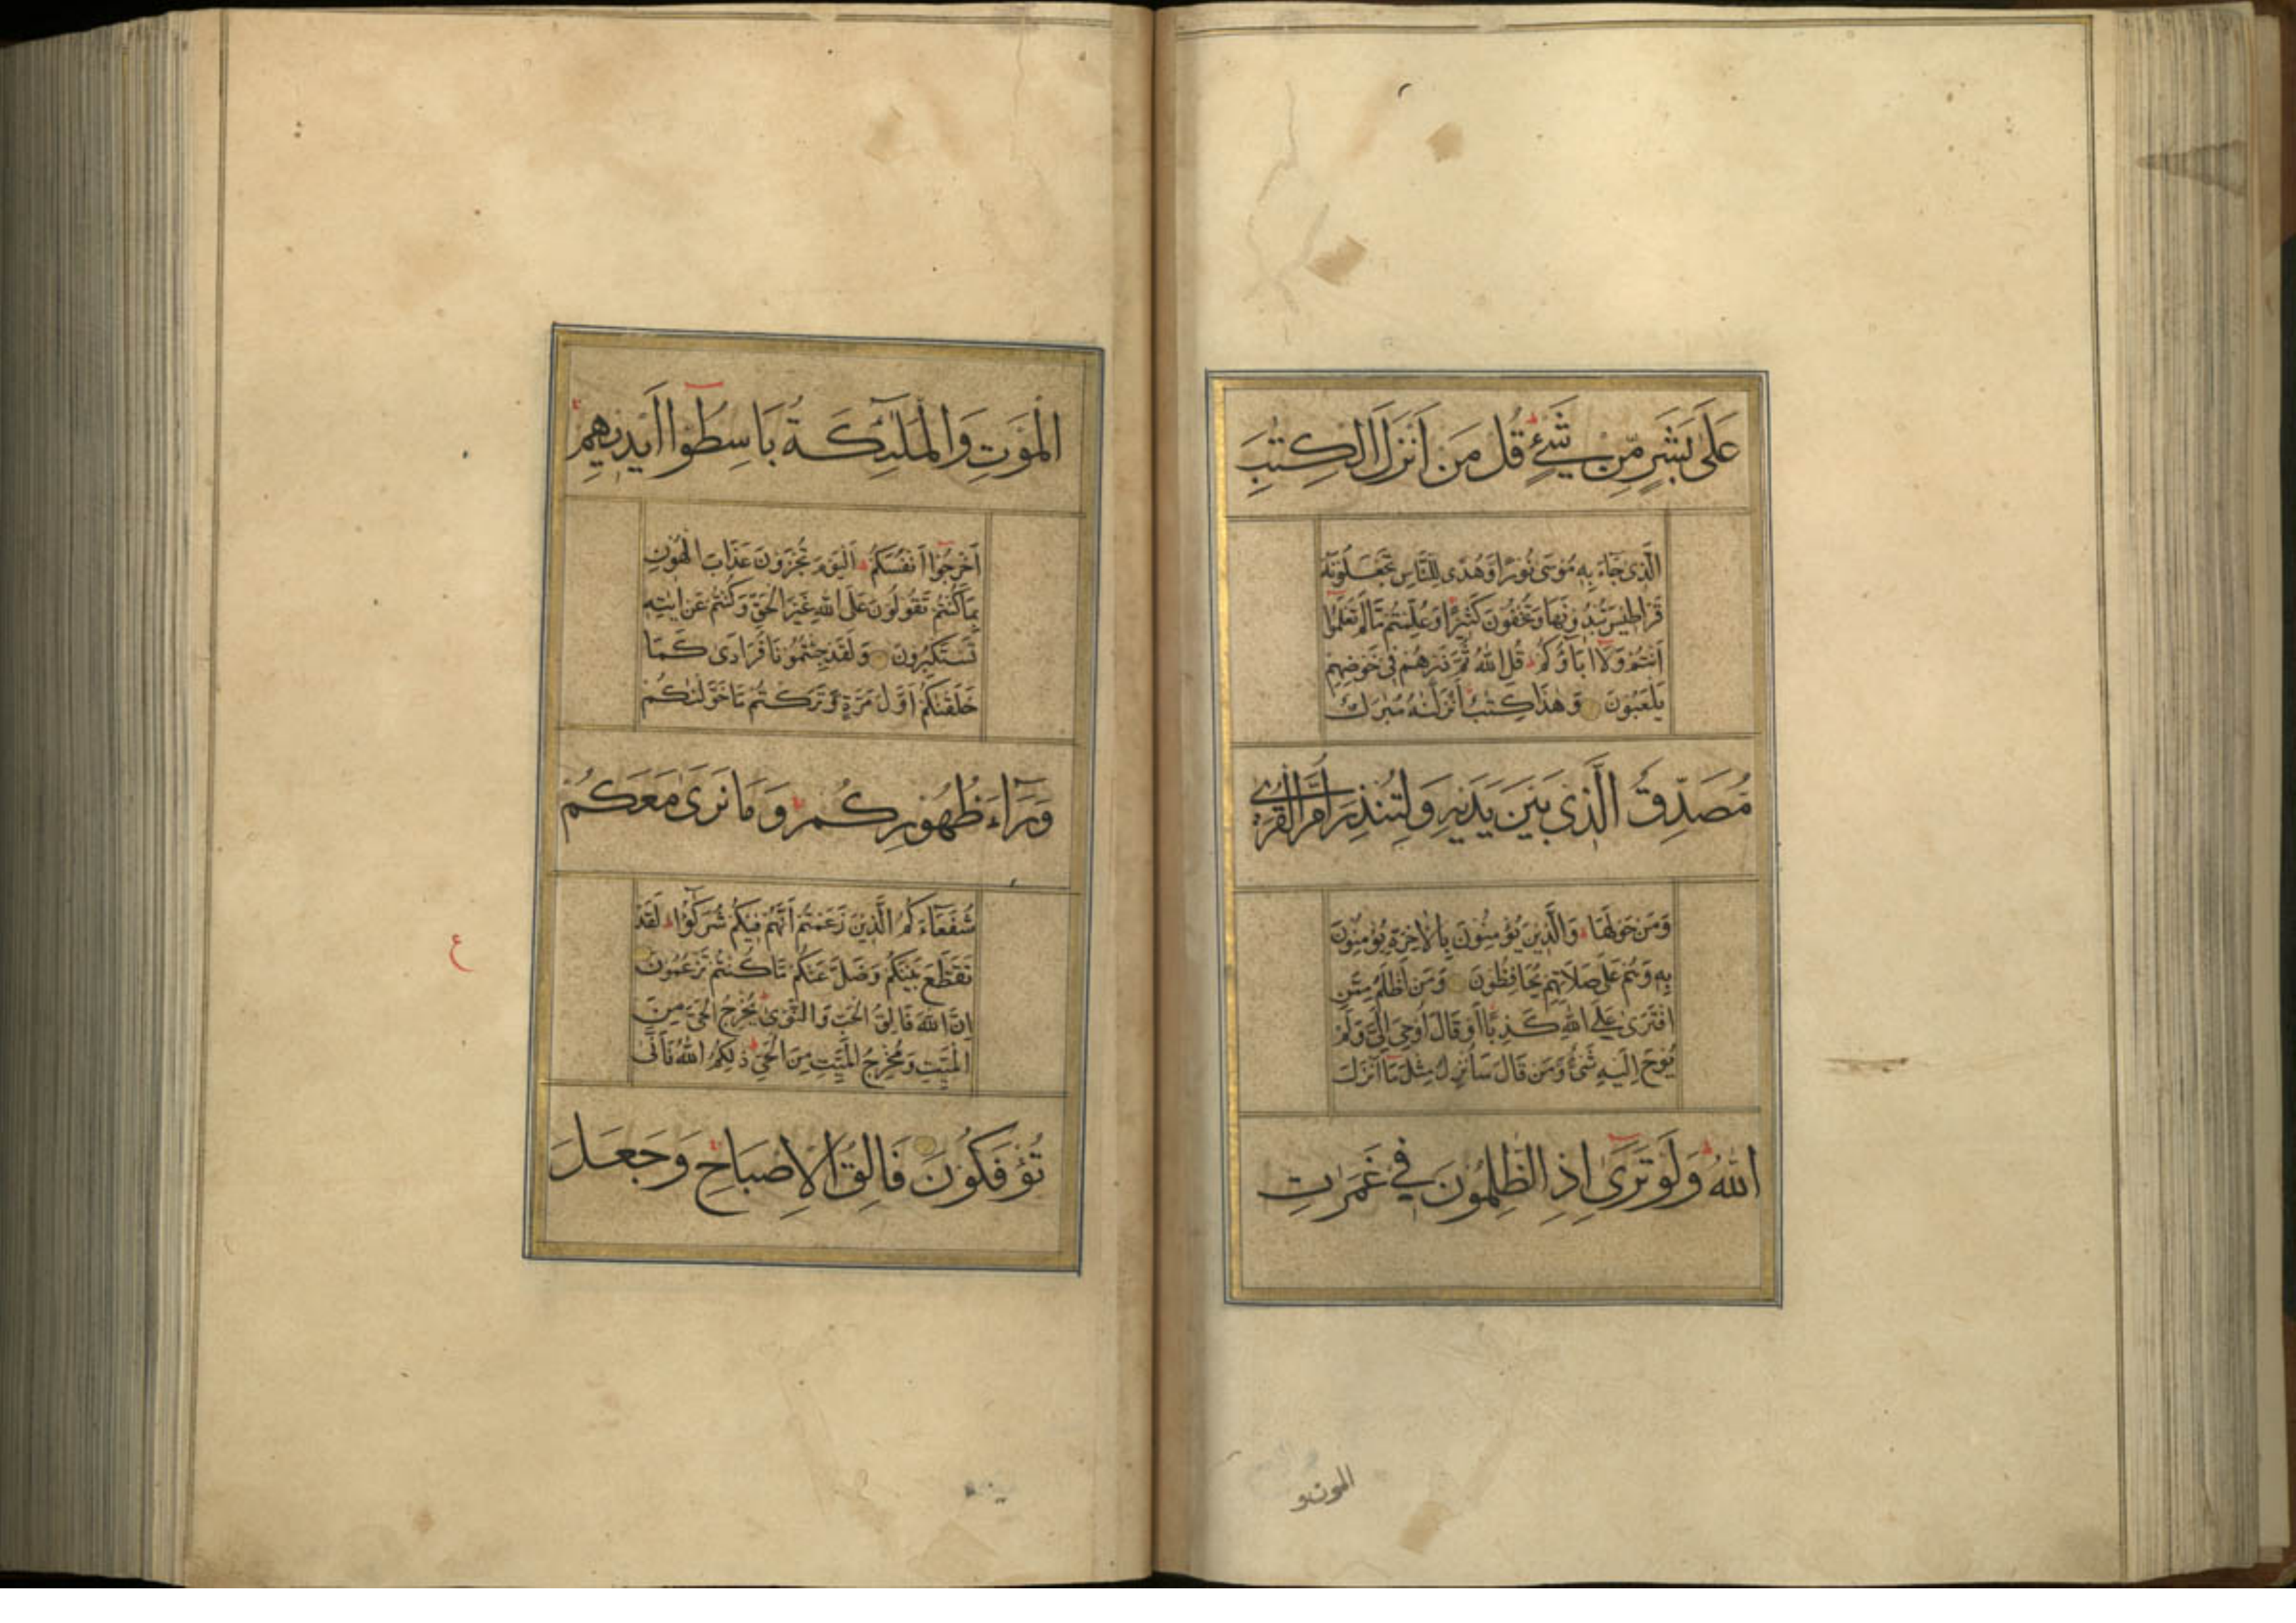 عَلَى بَشَرٍ مِّن شَيْءٍ قُل مَن اَنزَلَ الكِتٰبَ
الَّذِی جَاءَ بِهِ مُوسَی نُورًا وَهُدًی لِلنَّاسِ تَجعَلُونَهُ
قَرَاطِیسَ تُبدُونَهَا وَتُخفُونَ كَثِیرًا وَعُلِّمتُم مَّا لَم تَعلَمُوا
اَنتُم وَلَا اٰبَاؤُكُم قُلِ اللهُ ثُمَّ ذَرهُم فِی خَوضِهِم
یَلعَبُونَ وَهٰذَا كِتٰبٌ اَنزَلنٰهُ مُبٰرَكٌ
مُصَدِّقُ الَّذِی بَینَ یَدَیهِ وَلِتُنذِرَ اُمَّ القُرٰی
وَمَن حَولَهَا وَالَّذِینَ یُؤمِنُونَ بِالاٰخِرَةِ یُؤمِنُونَ
بِهِ وَهُم عَلَی صَلَاتِهِم یُحَافِظُونَ وَمَن اَظلَمُ مِمَّنِ
افتَرٰی عَلَی اللهِ كَذِبًا اَو قَالَ اُوحِیَ اِلَیَّ وَلَم
یُوحَ اِلَیهِ شَیءٌ وَمَن قَالَ سَاُنزِلُ مِثلَ مَا اَنزَلَ
اللهُ وَلَو تَرٰی اِذِ الظّٰلِمُونَ فِی غَمَرٰتِ
الموت و
المَوتِ وَالمَلٰئِكَةُ بَاسِطُوا اَیدِیهِم
اَخرِجُوا اَنفُسَكُم اَلیَومَ تُجزَونَ عَذَابَ الهُونِ
بِمَا كُنتُم تَقُولُونَ عَلَی اللهِ غَیرَ الحَقِّ وَكُنتُم عَن اٰیٰتِهِ
تَستَكبِرُونَ وَلَقَد جِئتُمُونَا فُرَادَی كَمَا
خَلَقنٰكُم اَوَّلَ مَرَّةٍ وَتَرَكتُم مَّا خَوَّلنٰكُم
وَرَاءَ ظُهُورِكُم وَمَا نَرٰی مَعَكُم
شُفَعَاءَكُمُ الَّذِینَ زَعَمتُم اَنَّهُم فِیكُم شُرَكٰؤُا لَقَد
تَقَطَّعَ بَینَكُم وَضَلَّ عَنكُم مَّا كُنتُم تَزعُمُونَ
اِنَّ اللهَ فَالِقُ الحَبِّ وَالنَّوٰی یُخرِجُ الحَیَّ مِنَ
المَیِّتِ وَمُخرِجُ المَیِّتِ مِنَ الحَیِّ ذٰلِكُمُ اللهُ فَاَنّٰی
تُؤفَكُونَ فَالِقُ الاِصبَاحِ وَجَعَلَ
ع